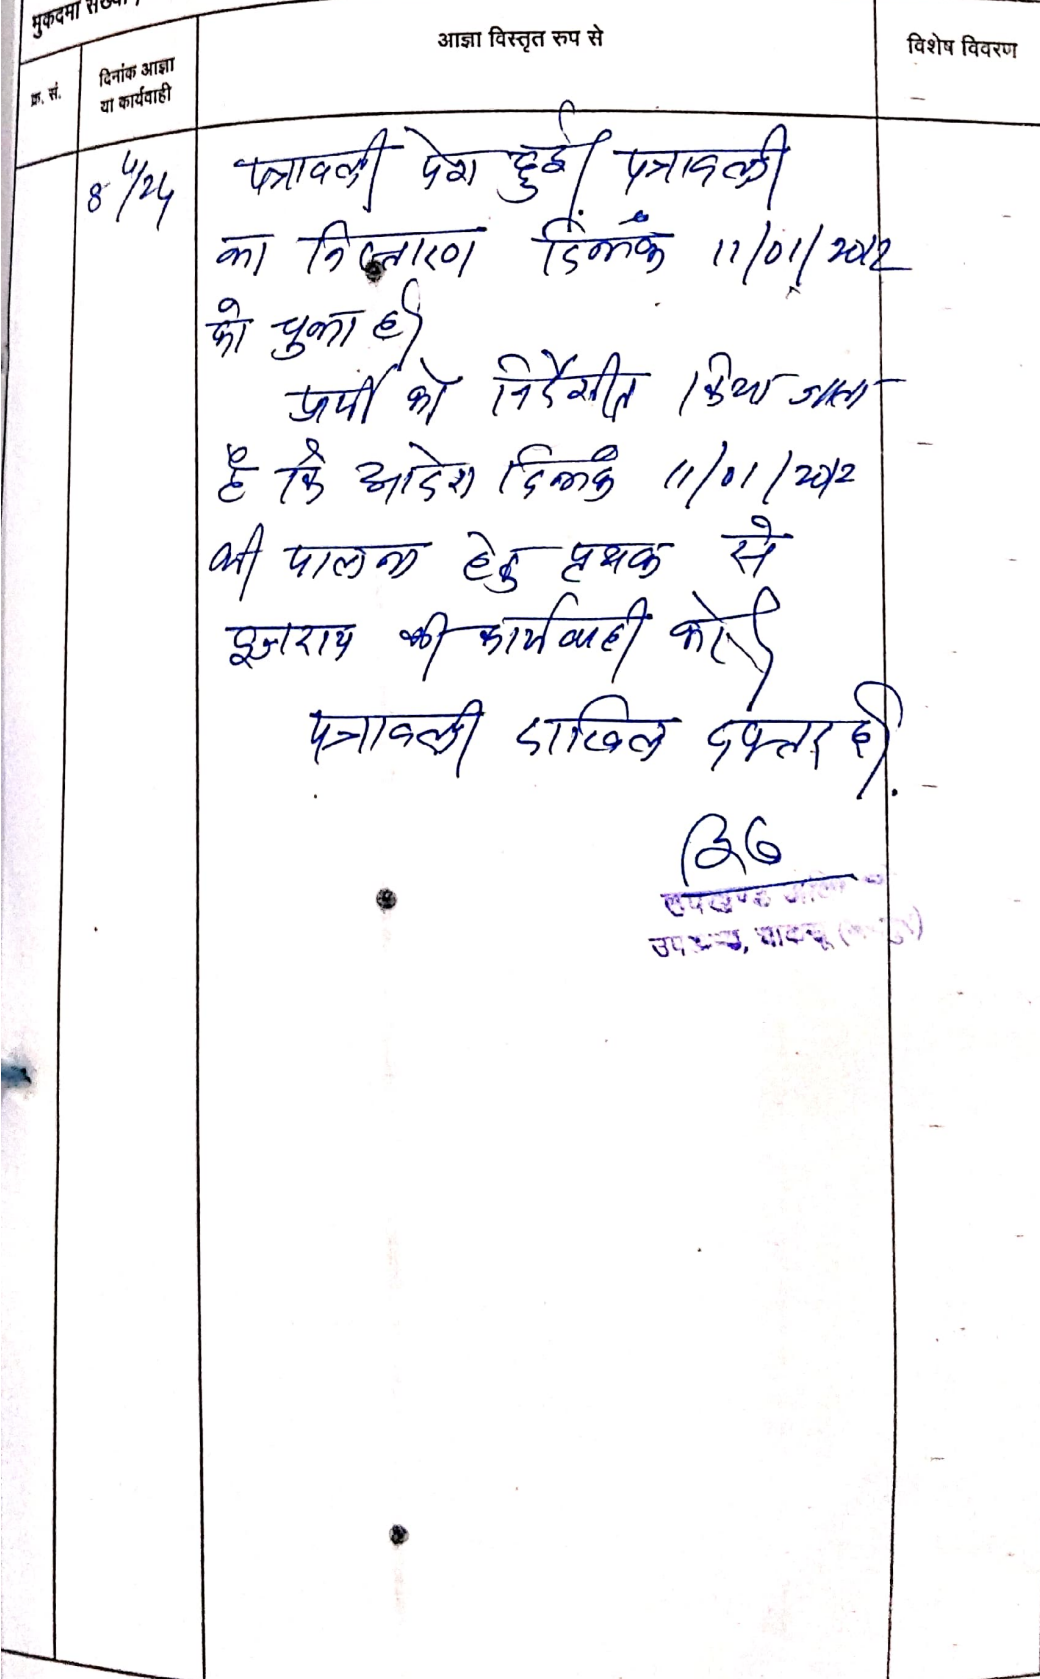 मुकदमा संख्या
क्र. सं.
दिनांक आज्ञा
या कार्यवाही
आज्ञा विस्तृत रुप से
विशेष विवरण
8 4/24
पत्रावली पेश हुई। पत्रावली
का निस्तारण दिनांक 11/01/2012
को चुका है।
प्रार्थी को निर्देशीत किया जाता
है कि आदेश दिनांक 11/01/2012
की पालना हेतु पृथक से
इजराय की कार्यवाही करें।
पत्रावली दाखिल दफ्तर हो।
उपखण्ड
उपखण्ड, चाकसू